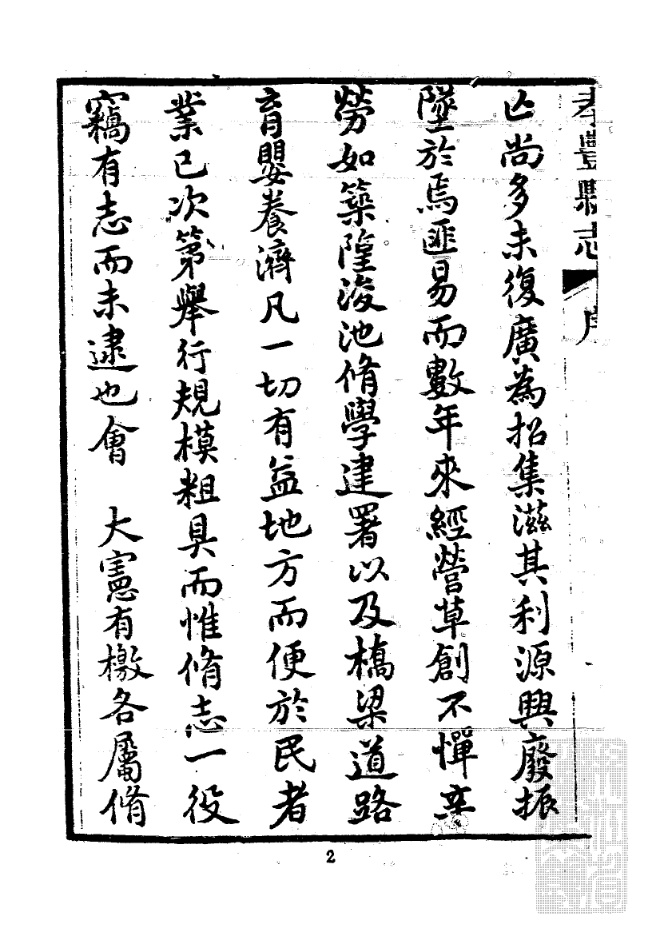 孝豐縣志 序
亾尚多未復廣為招集滋其利源興廢振
墜於焉匪易而數年來經營草創不憚辛
勞如築隍浚池脩學建署以及橋梁道路
育嬰養濟凡一切有益地方而便於民者
業已次第舉行規模粗具而惟脩志一役
竊有志而未逮也會 大憲有檄各屬脩
2